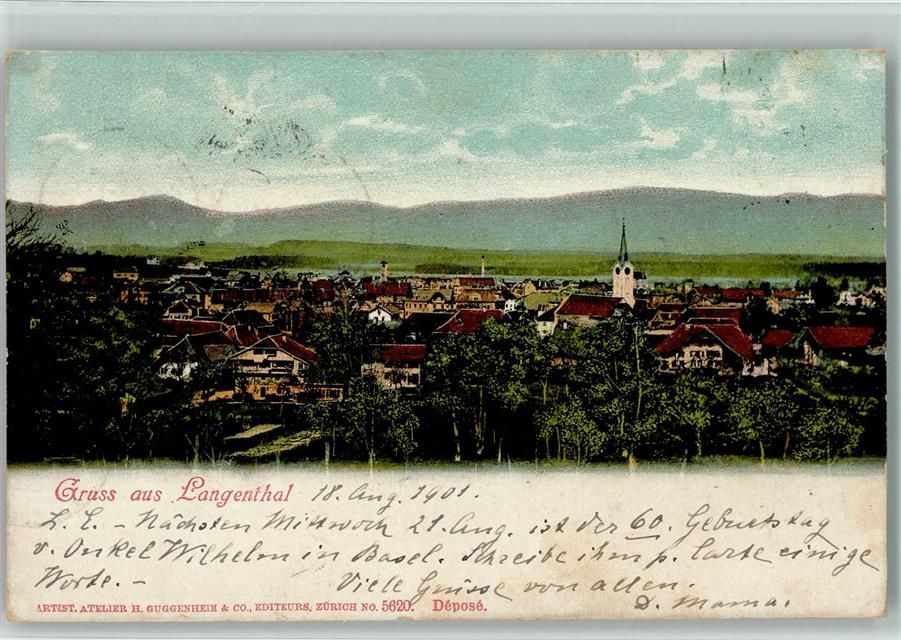 Gruss aus Langenthal 18. Aug. 1901.
L. E. - Nächsten Mittwoch 21. Aug. ist der 60. Geburtstag
v. Onkel Wilhelm in Basel. Schreibe ihm p. Carte einige
Worte. - Viele Grüsse von allen.
D. Mama.
ARTIST. ATELIER H. GUGGENHEIM & CO., EDITEURS, ZÜRICH NO. 5620. Déposé.